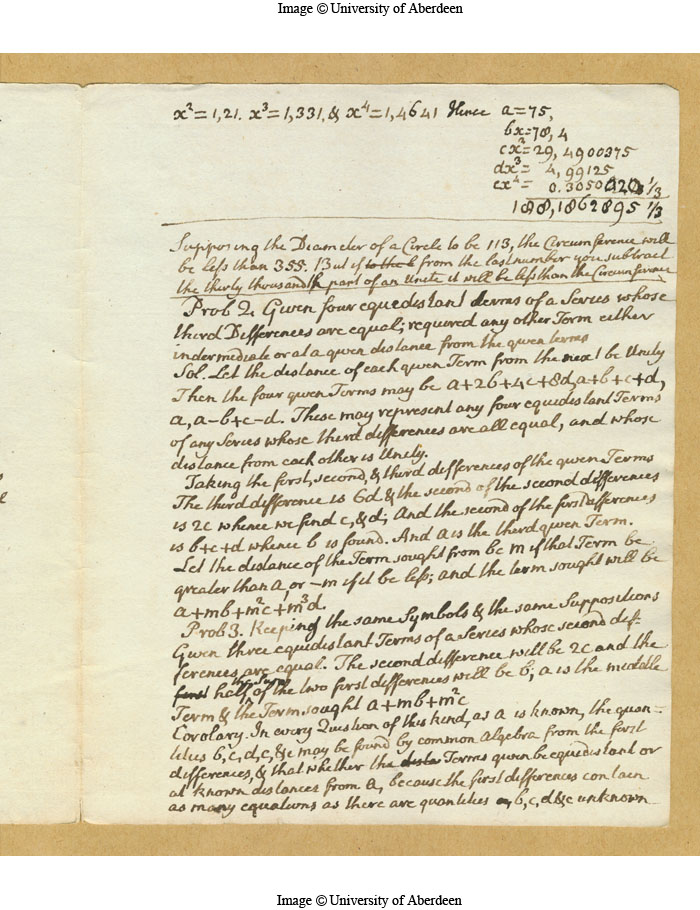 Image © University of Aberdeen
x² = 1,21. x³ = 1,331, & x⁴ = 1,4641 Hence a = 75,
bx = 78,4
cx² = 29,4900375
dx³ = 4,99125
ex⁴ = 0.3050020 1/3
188,1862895 1/3
Supposing the Diameter of a Circle to be 113, the Circumference will
be less than 355. But if to the b from the last number you subtract
the thirty thousandth part of an Unite it will be less than the Circumference
Prob 2. Given four equedistant terms of a Series whose
third Differences are equal; required any other Term either
indermediate or at a given distance from the given terms
Sol. Let the distance of each given Term from the next be Unity
Then the four given Terms may be a+2b+4c+8d, a+b+c+d,
a, a−b+c−d. These may represent any four equedistant Terms
of any Series whose third differences are all equal, and whose
distance from each other is Unity.
Taking the first, second, & third differences of the given Terms
The third difference is 6d & the second of the second differences
is 2c whence we find c, & d; And the second of the first differences
is b+c+d whence b is found. And a is the third given Term.
Let the distance of the Term sought from be m if that Term be
greater than a, or −m if it be less; and the term sought will be
a+mb+m²c+m³d.
Prob 3. Keeping the same Symbols & the same Suppositions
Given three equedistant Terms of a Series whose second dif-
ferences are equal. The second difference will be 2c and the
first half the Sum of the two first differences will be b; a is the middle
Term & the Term sought a+mb+m²c
Corolary. In every Question of this kind, as a is known, the quan=
tities b, c, d, e, &c may be found by common algebra from the first
differences, & that whether the dista Terms given be equedistant or
at known distances from a, because the first differences contain
as many equations as there are quantities a, b, c, d &c unknown
Image © University of Aberdeen